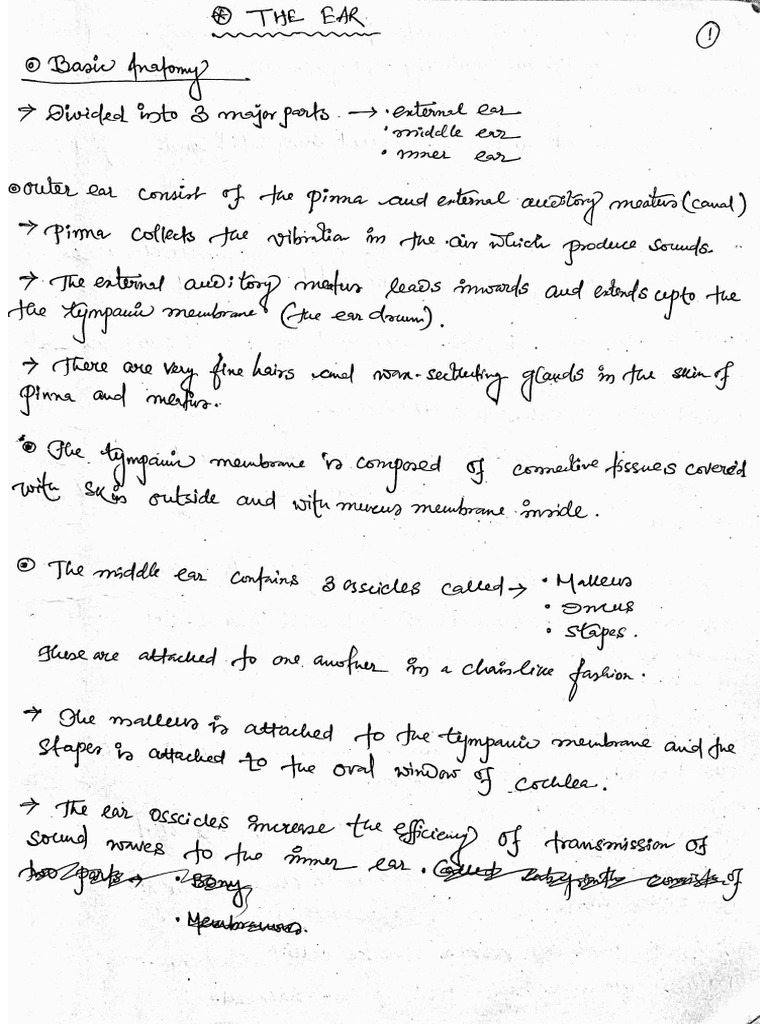 ⊛ THE EAR
1
⊙ Basic Anatomy
→ Divided into 3 major parts. → • external ear
• middle ear
• inner ear
⊙ outer ear consist of the pinna and external auditory meatus (canal)
→ Pinna collects the vibration in the air which produce sounds.
→ The external auditory meatus leads inwards and extends upto the
the tympanic membrane (the ear drum).
→ There are very fine hairs and wax-secreting glands in the skin of
pinna and meatus.
⊙ The tympanic membrane is composed of connective tissues covered
with skin outside and with mucus membrane inside.
⊙ The middle ear contains 3 osscicles called → • Malleus
• Incus
• Stapes.
These are attached to one another in a chain-like fashion.
→ The malleus is attached to the tympanic membrane and the
stapes is attached to the oval window of cochlea.
→ The ear osscicles increase the efficiency of transmission of
sound waves to the inner ear. Called labyrinth consists of
two parts → • Bony
• Membranous.